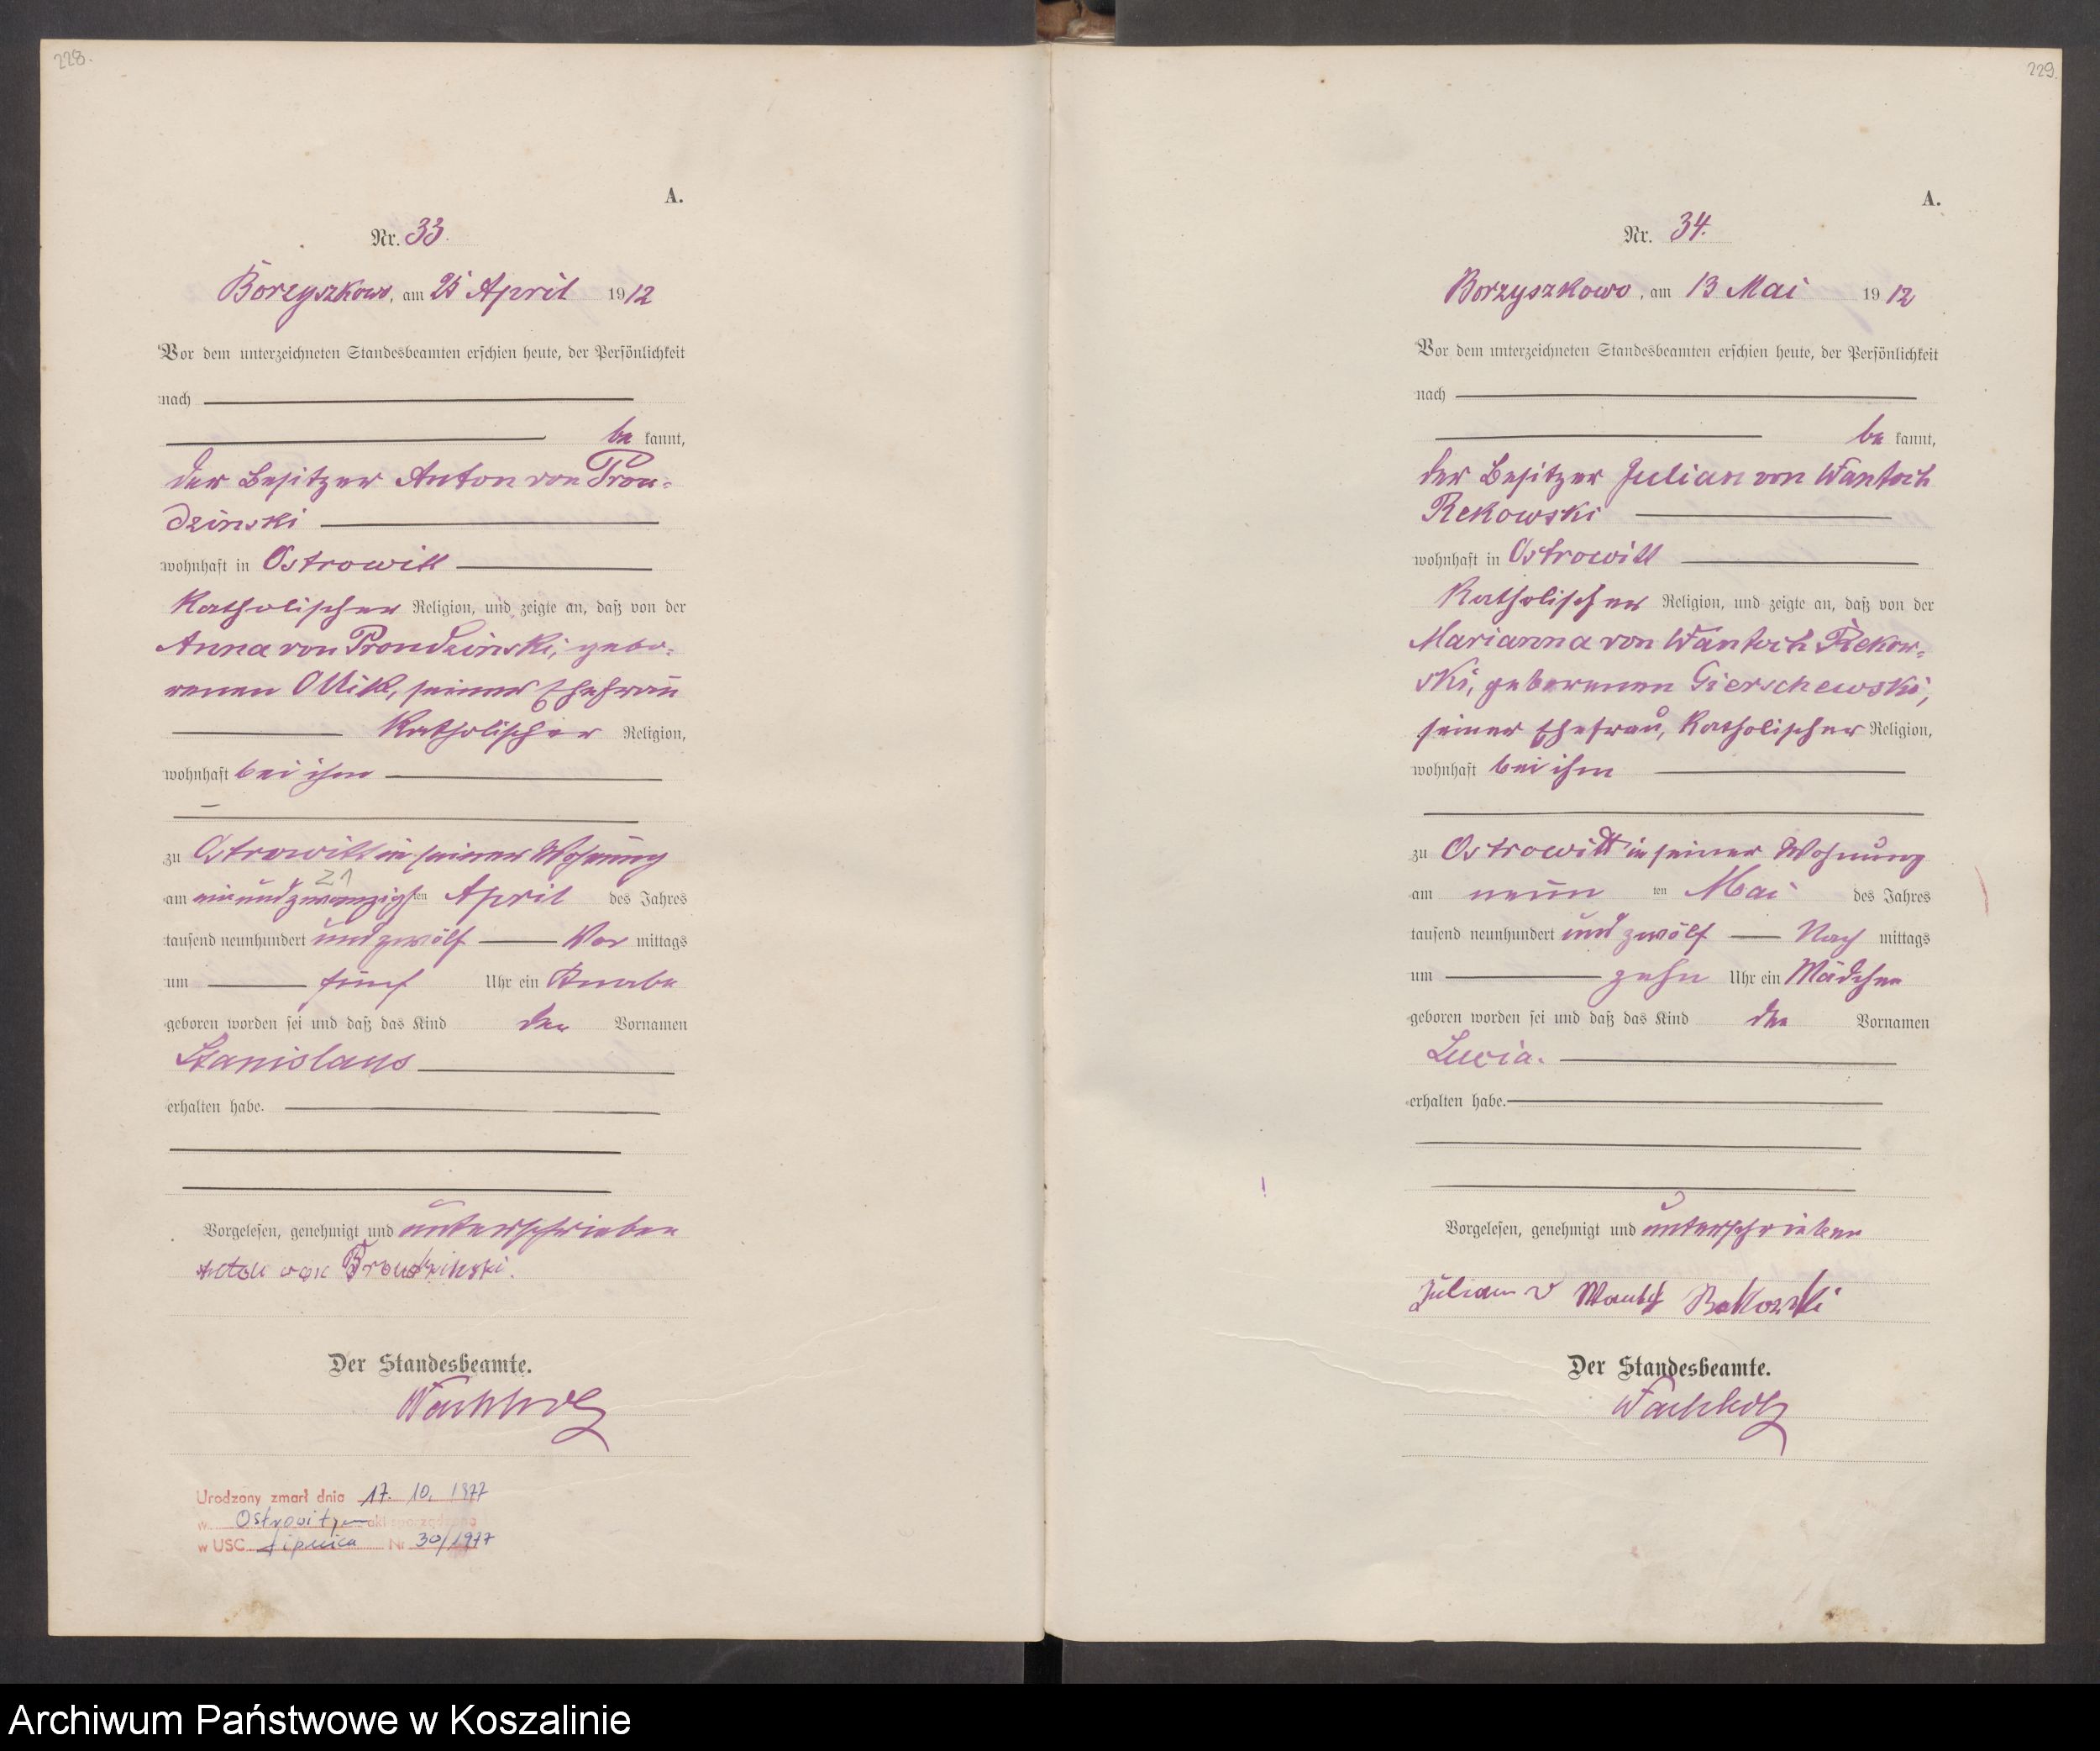 228.
A.
Nr. 33.
Borzyszkowo, am 25 April 1912
Vor dem unterzeichneten Standesbeamten erschien heute, der Persönlichkeit
nach
be kannt,
der Besitzer Anton von Pron=
dzinski
wohnhaft in Ostrowitt
Katholischer Religion, und zeigte an, daß von der
Anna von Prondzinski, gebo=
renen Ollik, seiner Ehefrau
Katholischer Religion,
wohnhaft bei ihm
zu Ostrowitt in seiner Wohnung
21
am einundzwanzigsten April des Jahres
tausend neunhundert und zwölf Vor mittags
um fünf Uhr ein Knabe
geboren worden sei und daß das Kind den Vornamen
Stanislaus
erhalten habe.
Vorgelesen, genehmigt und unterschrieben
Anton von Prondzinski.
Der Standesbeamte.
Wachholz
Urodzony zmarł dnia 17. 10. 1977
w Ostrowitem akt sporządzono
w USC Lipnica Nr 30/1977
229.
A.
Nr. 34.
Borzyszkowo, am 13 Mai 1912
Vor dem unterzeichneten Standesbeamten erschien heute, der Persönlichkeit
nach
be kannt,
der Besitzer Julian von Wantoch
Rekowski
wohnhaft in Ostrowitt
Katholischer Religion, und zeigte an, daß von der
Marianna von Wantoch Rekow=
ski, geborenen Gierschewski,
seiner Ehefrau, Katholischer Religion,
wohnhaft bei ihm
zu Ostrowitt in seiner Wohnung
am neun ten Mai des Jahres
tausend neunhundert und zwölf Nach mittags
um zehn Uhr ein Mädchen
geboren worden sei und daß das Kind den Vornamen
Lucia.
erhalten habe.
Vorgelesen, genehmigt und unterschrieben
Julian v Wantoch Rekowski
Der Standesbeamte.
Wachholz
Archiwum Państwowe w Koszalinie